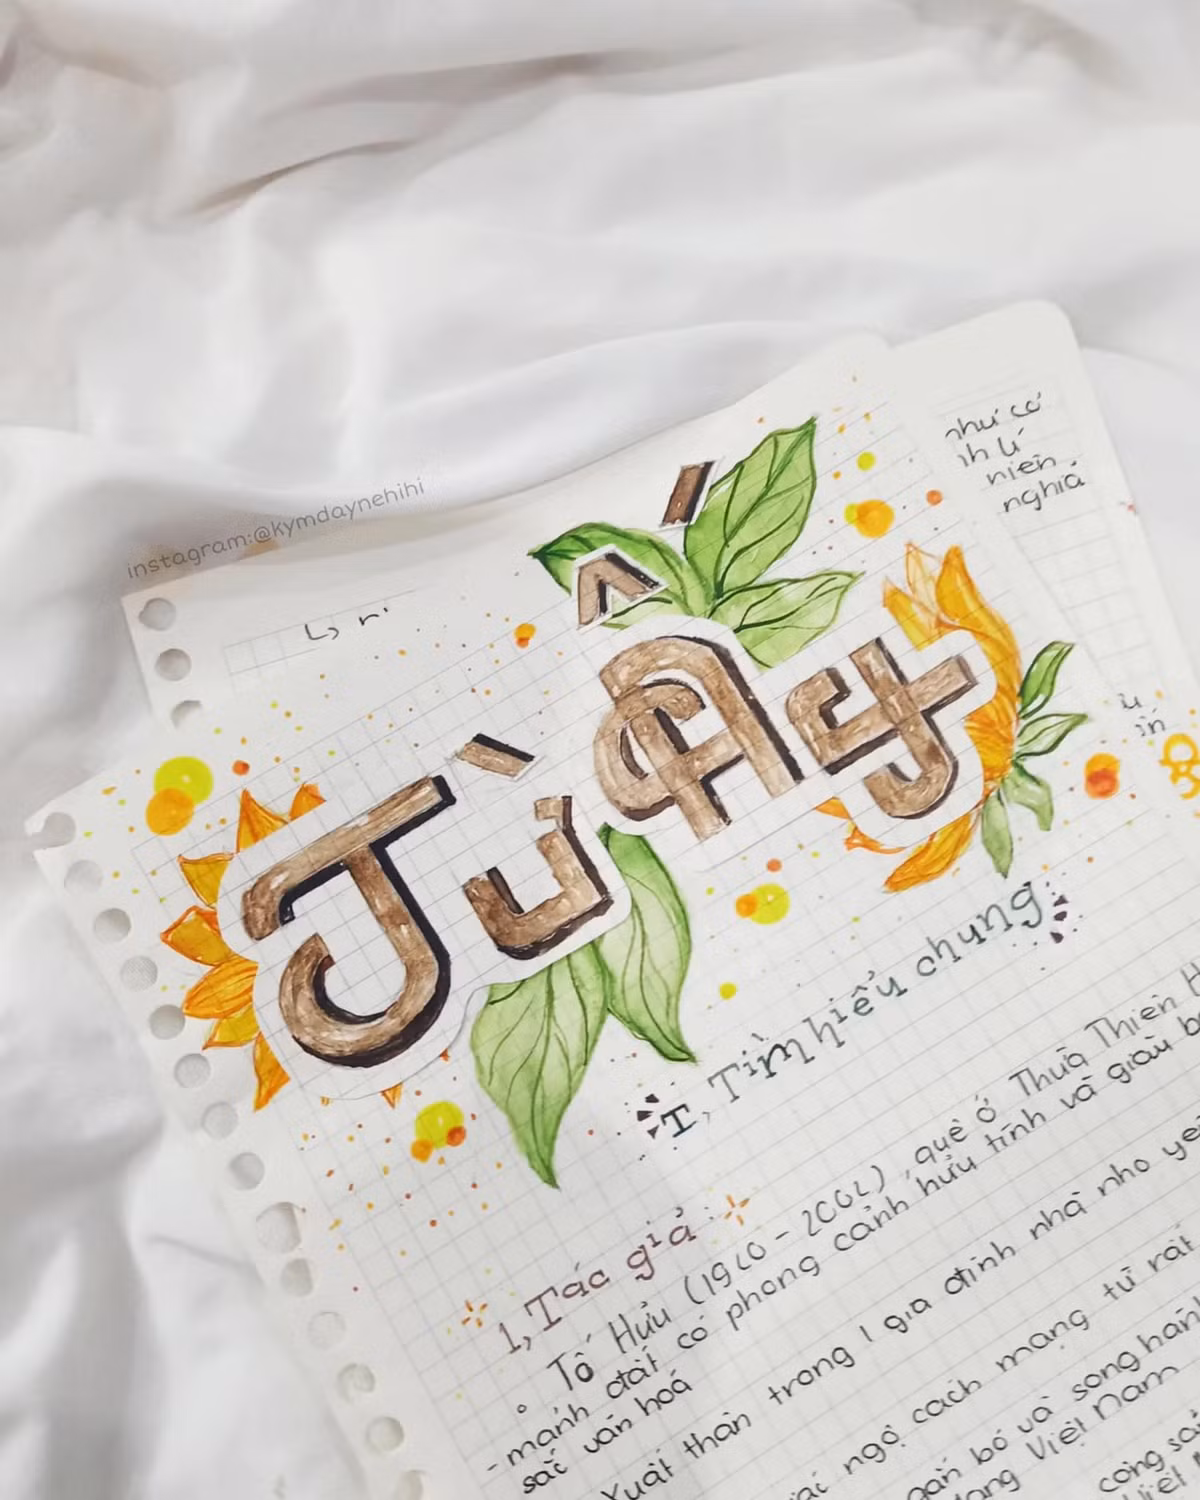 instagram:@kymdaynehihi
như cơ
nh lí
niên
nghiã
Từ Ấy
I, Tìm hiểu chung
1, Tác giả:
Tố Hữu (1920 - 2002), quê ở Thừa Thiên H
- mảnh đất có phong cảnh hữu tình và giàu bả
sắc văn hoá
Xuất thân trong 1 gia đình nhà nho yê
ác ngộ cách mạng từ rất
gắn bó và song hàn
dạng Việt Nam
cộng sả
Việt N